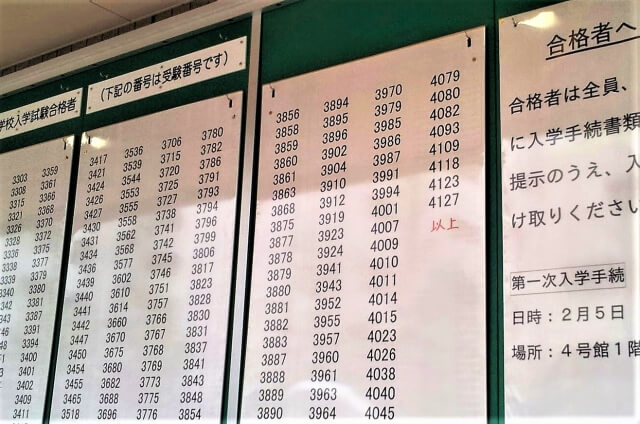 学校入学試験合格者
(下記の番号は受験番号です)
3303 3359
3308 3361
3315 3366
3321 3368
3326 3370
3328 3372
3336 3375
3338 3377
3339 3379
3380
3381
3387
3391
3394
3400
3401
3402
3409
3411
3417 3536 3706 3780
3421 3539 3715 3782
3424 3544 3720 3786
3426 3553 3725 3791
3427 3555 3727 3793
3430 3558 3738 3794
3431 3562 3741 3796
3434 3568 3742 3799
3436 3577 3745 3806
3439 3602 3746 3817
3440 3610 3751 3823
3441 3614 3757 3828
3442 3660 3766 3830
3447 3670 3767 3831
3450 3675 3768 3837
3454 3680 3769 3841
3455 3682 3773 3843
3465 3688 3775 3848
3518 3696 3776 3854
3856 3894 3970 4079
3858 3895 3979 4080
3859 3896 3985 4082
3860 3902 3986 4093
3861 3904 3987 4109
3863 3910 3991 4118
3868 3912 3994 4123
3875 3919 4001 4127
3877 3923 4007 以上
3878 3924 4009
3879 3941 4010
3880 3943 4011
3881 3952 4014
3882 3955 4015
3883 3957 4023
3887 3960 4026
3888 3961 4038
3889 3963 4040
3890 3964 4045
合格者へ
合格者は全員、
に入学手続書類
提示のうえ、入
け取りください
第一次入学手続
日時：２月５日
場所：４号館１階